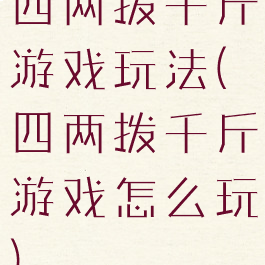 四两拨千斤
游戏玩法(
四两拨千斤
游戏怎么玩
)